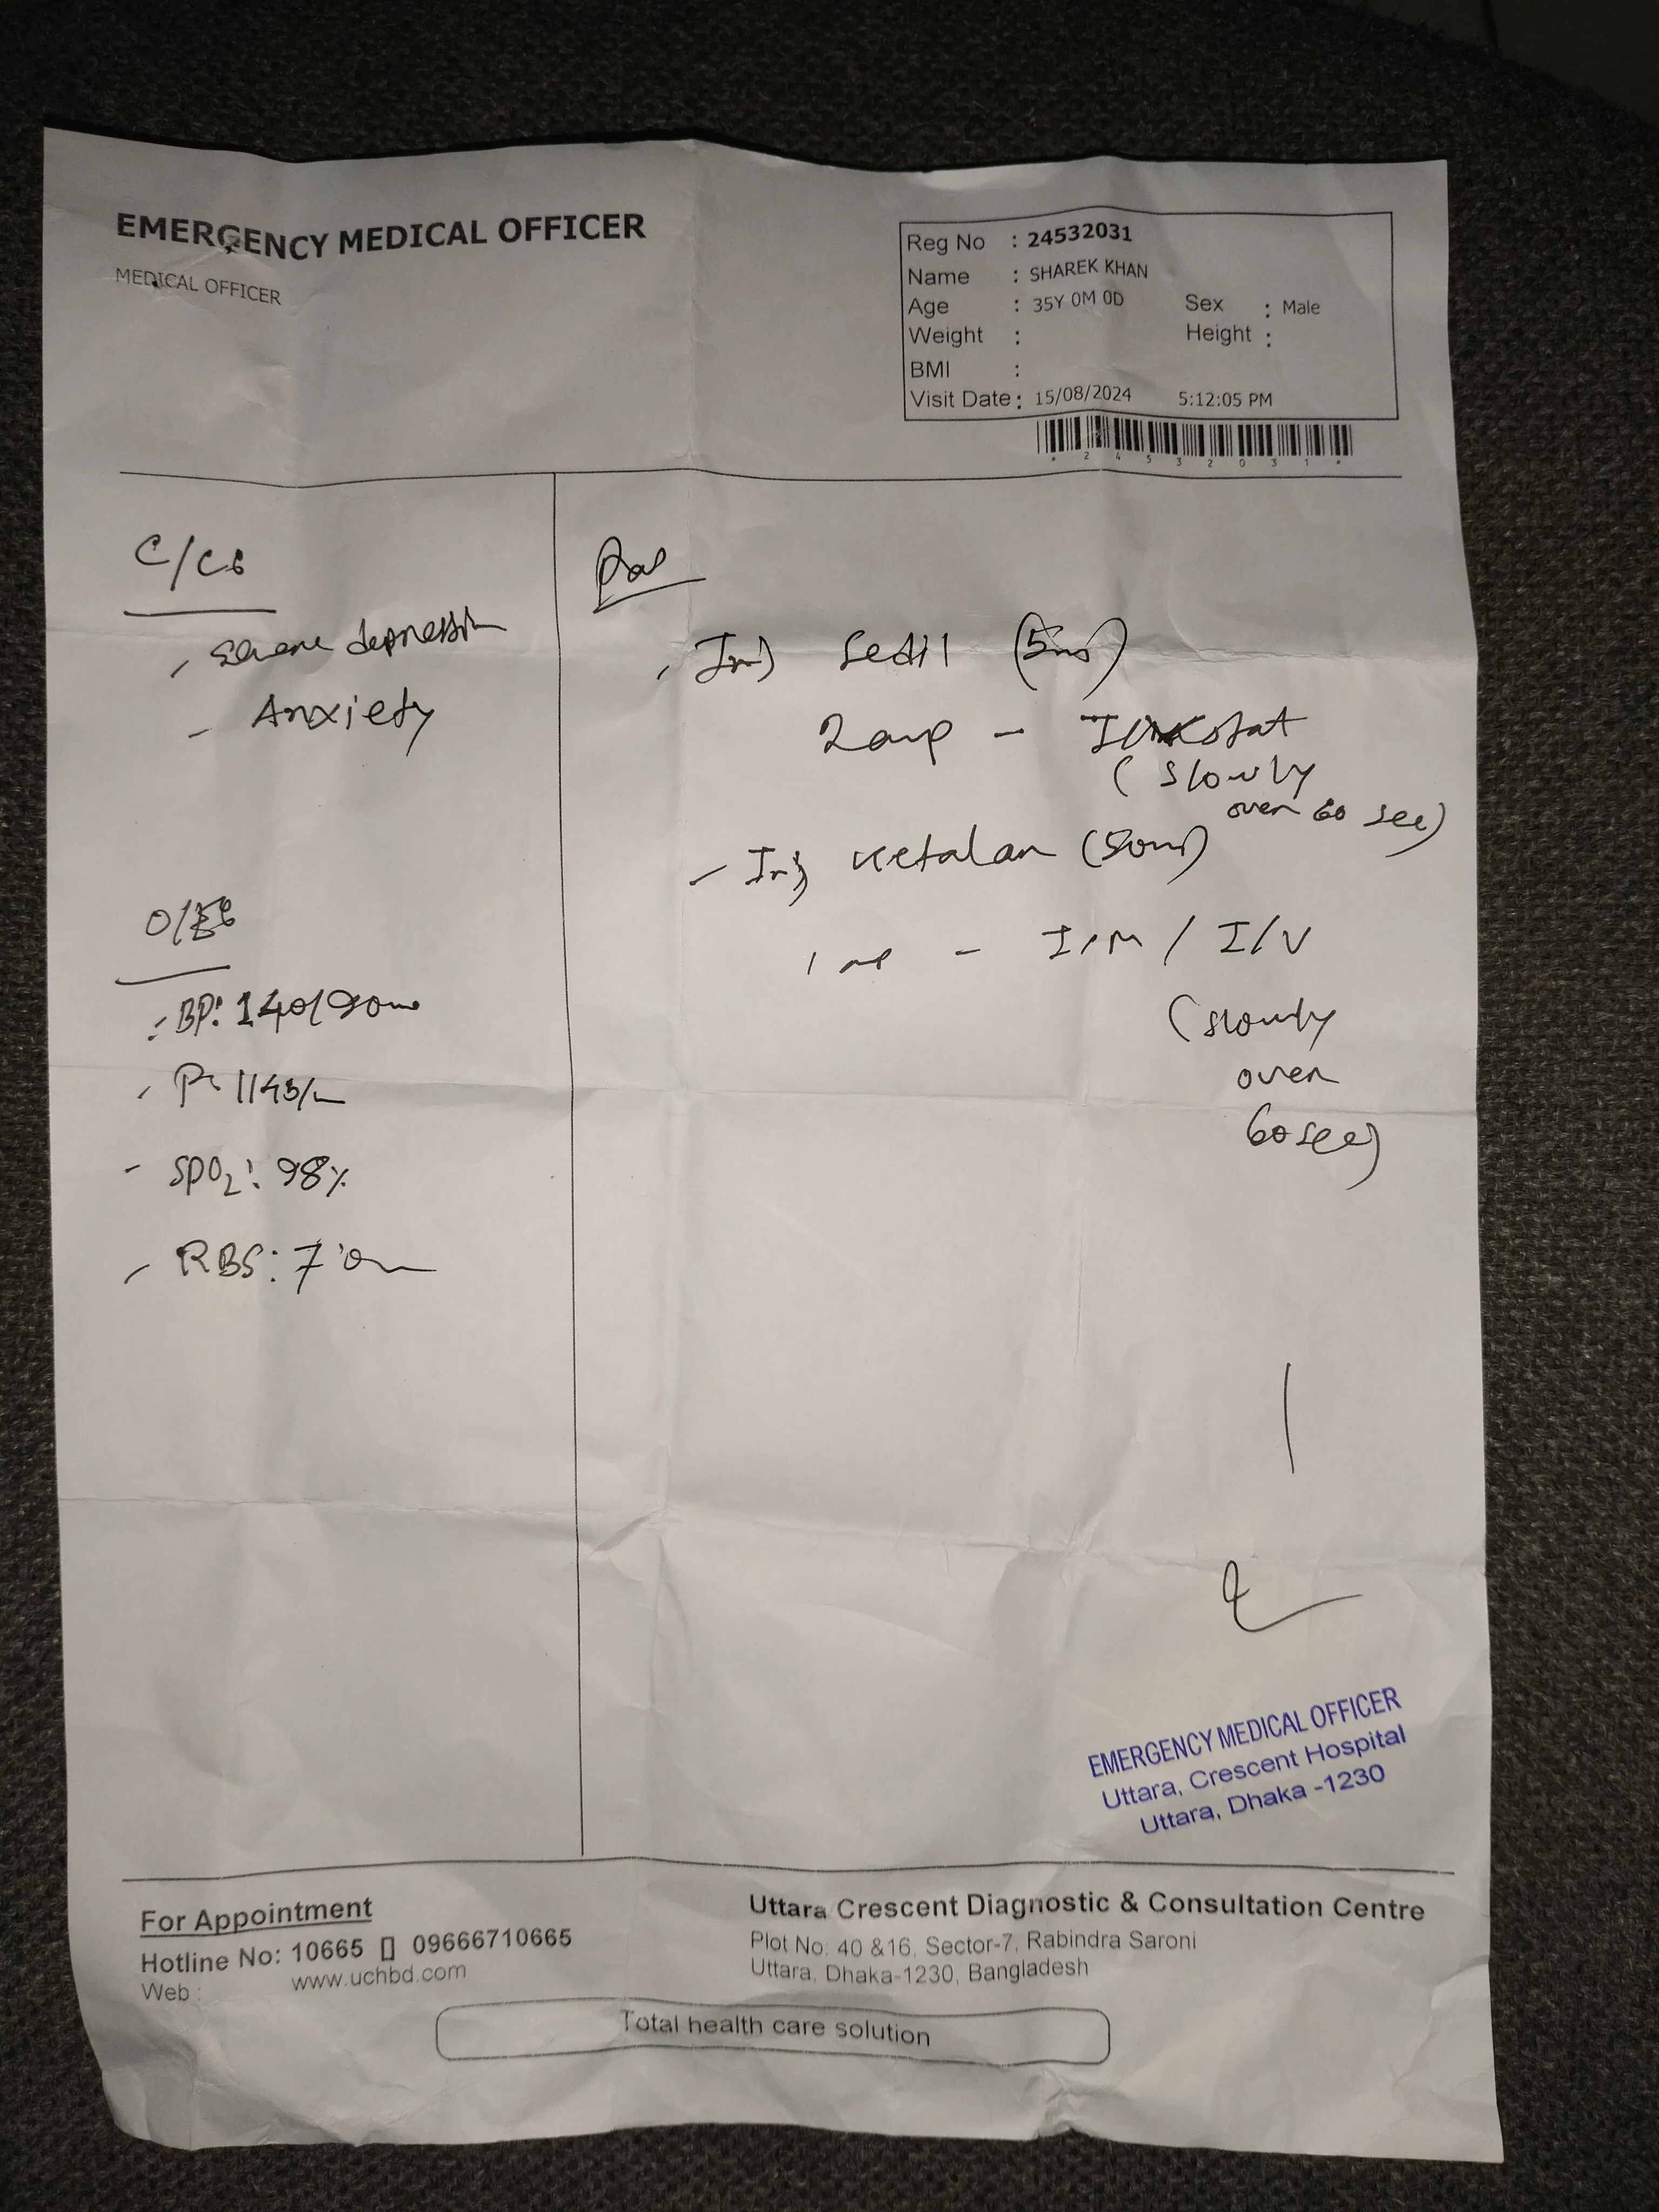 EMERGENCY MEDICAL OFFICER
MEDICAL OFFICER
Reg No : 24532031
Name : SHAREK KHAN
Age : 35Y 0M 0D Sex : Male
Weight : Height :
BMI :
Visit Date : 15/08/2024 5:12:05 PM
* 2 4 5 3 2 0 3 1 *
C/Cs
- severe depression
- Anxiety
O/Es
- BP: 140/90
- P: 114b/
- SPO2: 98%
- RBS: 7.0
- Inj Sedil (5mg)
2 amp - stat
(slowly
over 60 sec)
- Inj Ketalar (50mg)
1 - I/M / I/V
(slowly
over
60 sec)
EMERGENCY MEDICAL OFFICER
Uttara, Crescent Hospital
Uttara, Dhaka -1230
For Appointment
Hotline No: 10665 09666710665
Web : www.uchbd.com
Uttara Crescent Diagnostic & Consultation Centre
Plot No: 40 &16, Sector-7, Rabindra Saroni
Uttara, Dhaka-1230, Bangladesh
Total health care solution